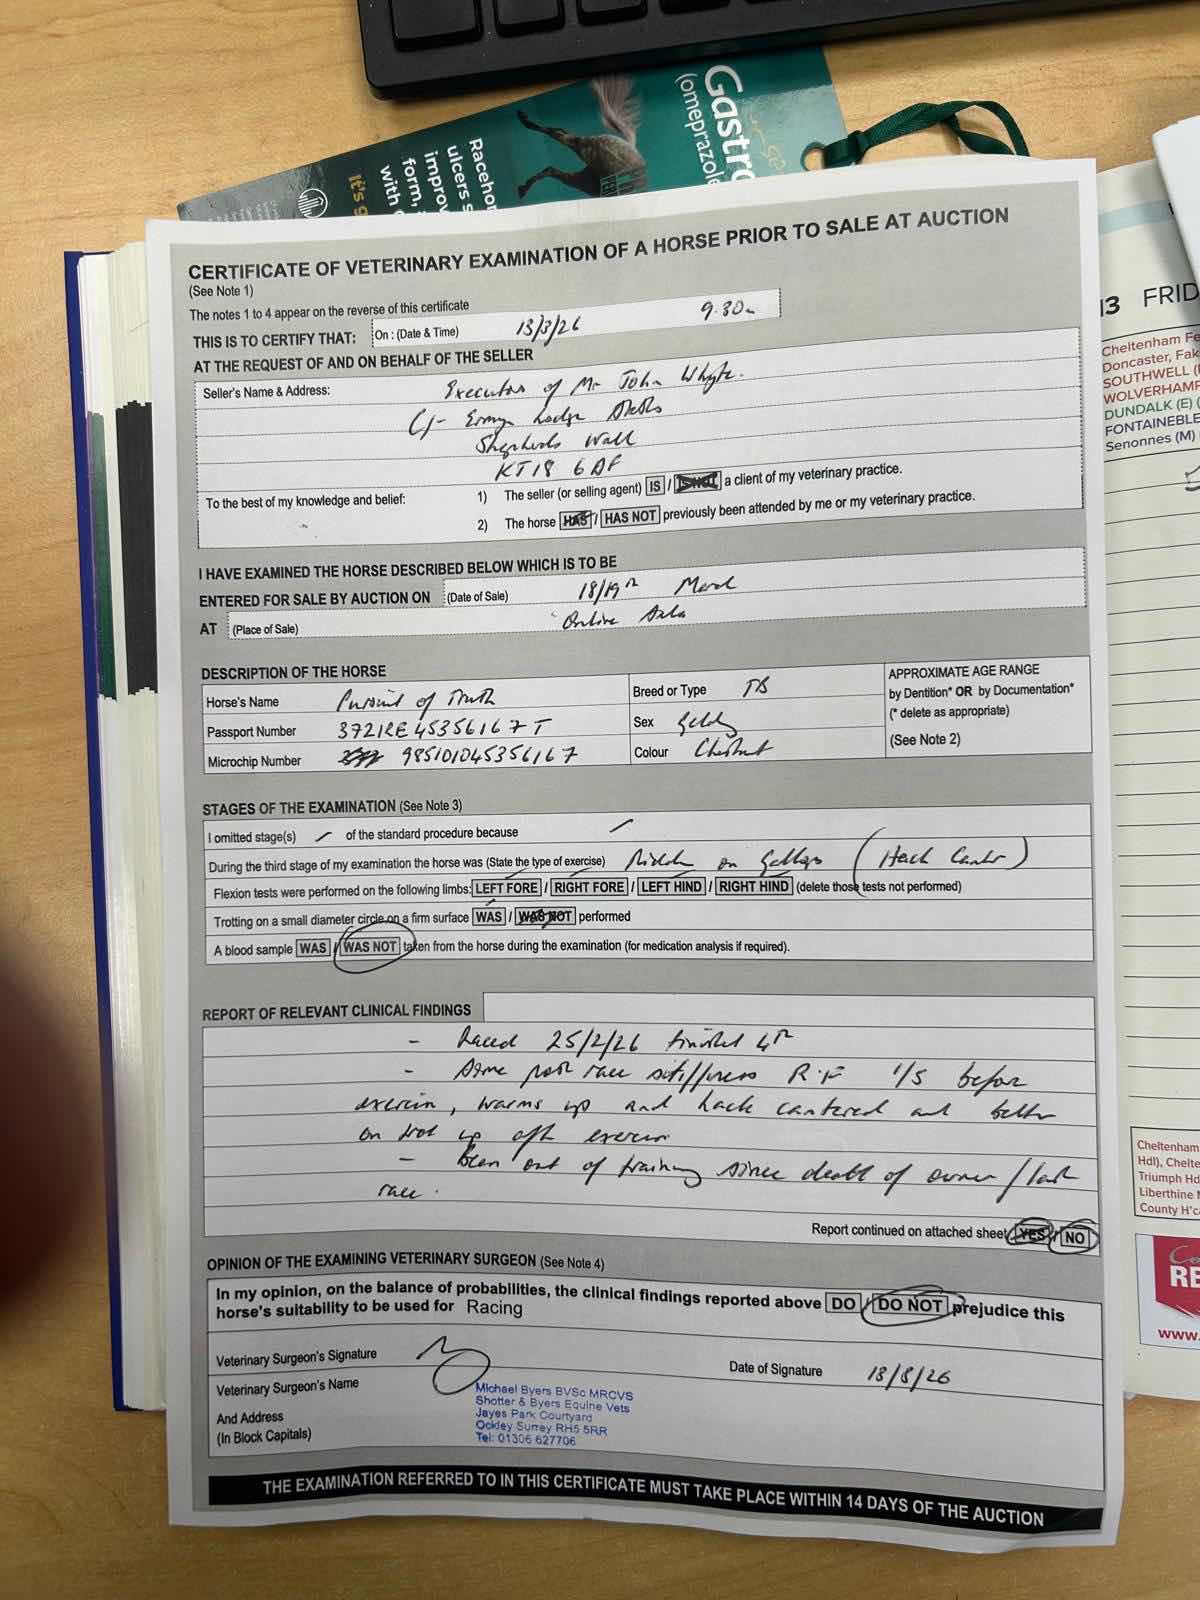 Gastro
(omeprazole
Racehor
ulcers s
improv
form,
with
It's g
CERTIFICATE OF VETERINARY EXAMINATION OF A HORSE PRIOR TO SALE AT AUCTION
(See Note 1)
The notes 1 to 4 appear on the reverse of this certificate
THIS IS TO CERTIFY THAT: On : (Date & Time) 13/3/26 9.30
AT THE REQUEST OF AND ON BEHALF OF THE SELLER
Seller's Name & Address: Executors of Mr John Whyte.
C/- Lodge Stables
Shepherds Walk
KT18 6DF
To the best of my knowledge and belief: 1) The seller (or selling agent) IS / IS NOT a client of my veterinary practice.
2) The horse HAS / HAS NOT previously been attended by me or my veterinary practice.
I HAVE EXAMINED THE HORSE DESCRIBED BELOW WHICH IS TO BE
ENTERED FOR SALE BY AUCTION ON (Date of Sale) 18/19th March
AT (Place of Sale) Online Sale
DESCRIPTION OF THE HORSE
Horse's Name Pursuit of Truth
Passport Number 372IRE45356167T
Microchip Number 985101045356167
Breed or Type TB
Sex Gelding
Colour Chestnut
APPROXIMATE AGE RANGE
by Dentition* OR by Documentation*
(* delete as appropriate)
(See Note 2)
STAGES OF THE EXAMINATION (See Note 3)
I omitted stage(s) - of the standard procedure because -
During the third stage of my examination the horse was (State the type of exercise) Ridden on Gallops (Hack Canter)
Flexion tests were performed on the following limbs: LEFT FORE / RIGHT FORE / LEFT HIND / RIGHT HIND (delete those tests not performed)
Trotting on a small diameter circle on a firm surface WAS / WAS NOT performed
A blood sample WAS / WAS NOT taken from the horse during the examination (for medication analysis if required).
REPORT OF RELEVANT CLINICAL FINDINGS
- Raced 25/2/26 finished 4th
- Some post race stiffness R.F 1/5 before
exercise, warms up and hack cantered and better
on trot up after exercise
- Been out of training since death of owner / last
race.
Report continued on attached sheet YES / NO
OPINION OF THE EXAMINING VETERINARY SURGEON (See Note 4)
In my opinion, on the balance of probabilities, the clinical findings reported above DO / DO NOT prejudice this
horse's suitability to be used for Racing
Veterinary Surgeon's Signature
Date of Signature 13/3/26
Veterinary Surgeon's Name
And Address
(In Block Capitals)
Michael Byers BVSc MRCVS
Shotter & Byers Equine Vets
Jayes Park Courtyard
Ockley Surrey RH5 5RR
Tel: 01306 627706
THE EXAMINATION REFERRED TO IN THIS CERTIFICATE MUST TAKE PLACE WITHIN 14 DAYS OF THE AUCTION
13 FRID
Cheltenham Fe
Doncaster, Fak
SOUTHWELL (
WOLVERHAMP
DUNDALK (E) (
FONTAINEBLE
Senonnes (M)
Cheltenham
Hdl), Chelte
Triumph Hd
Liberthine
County H'ca
RE
www.